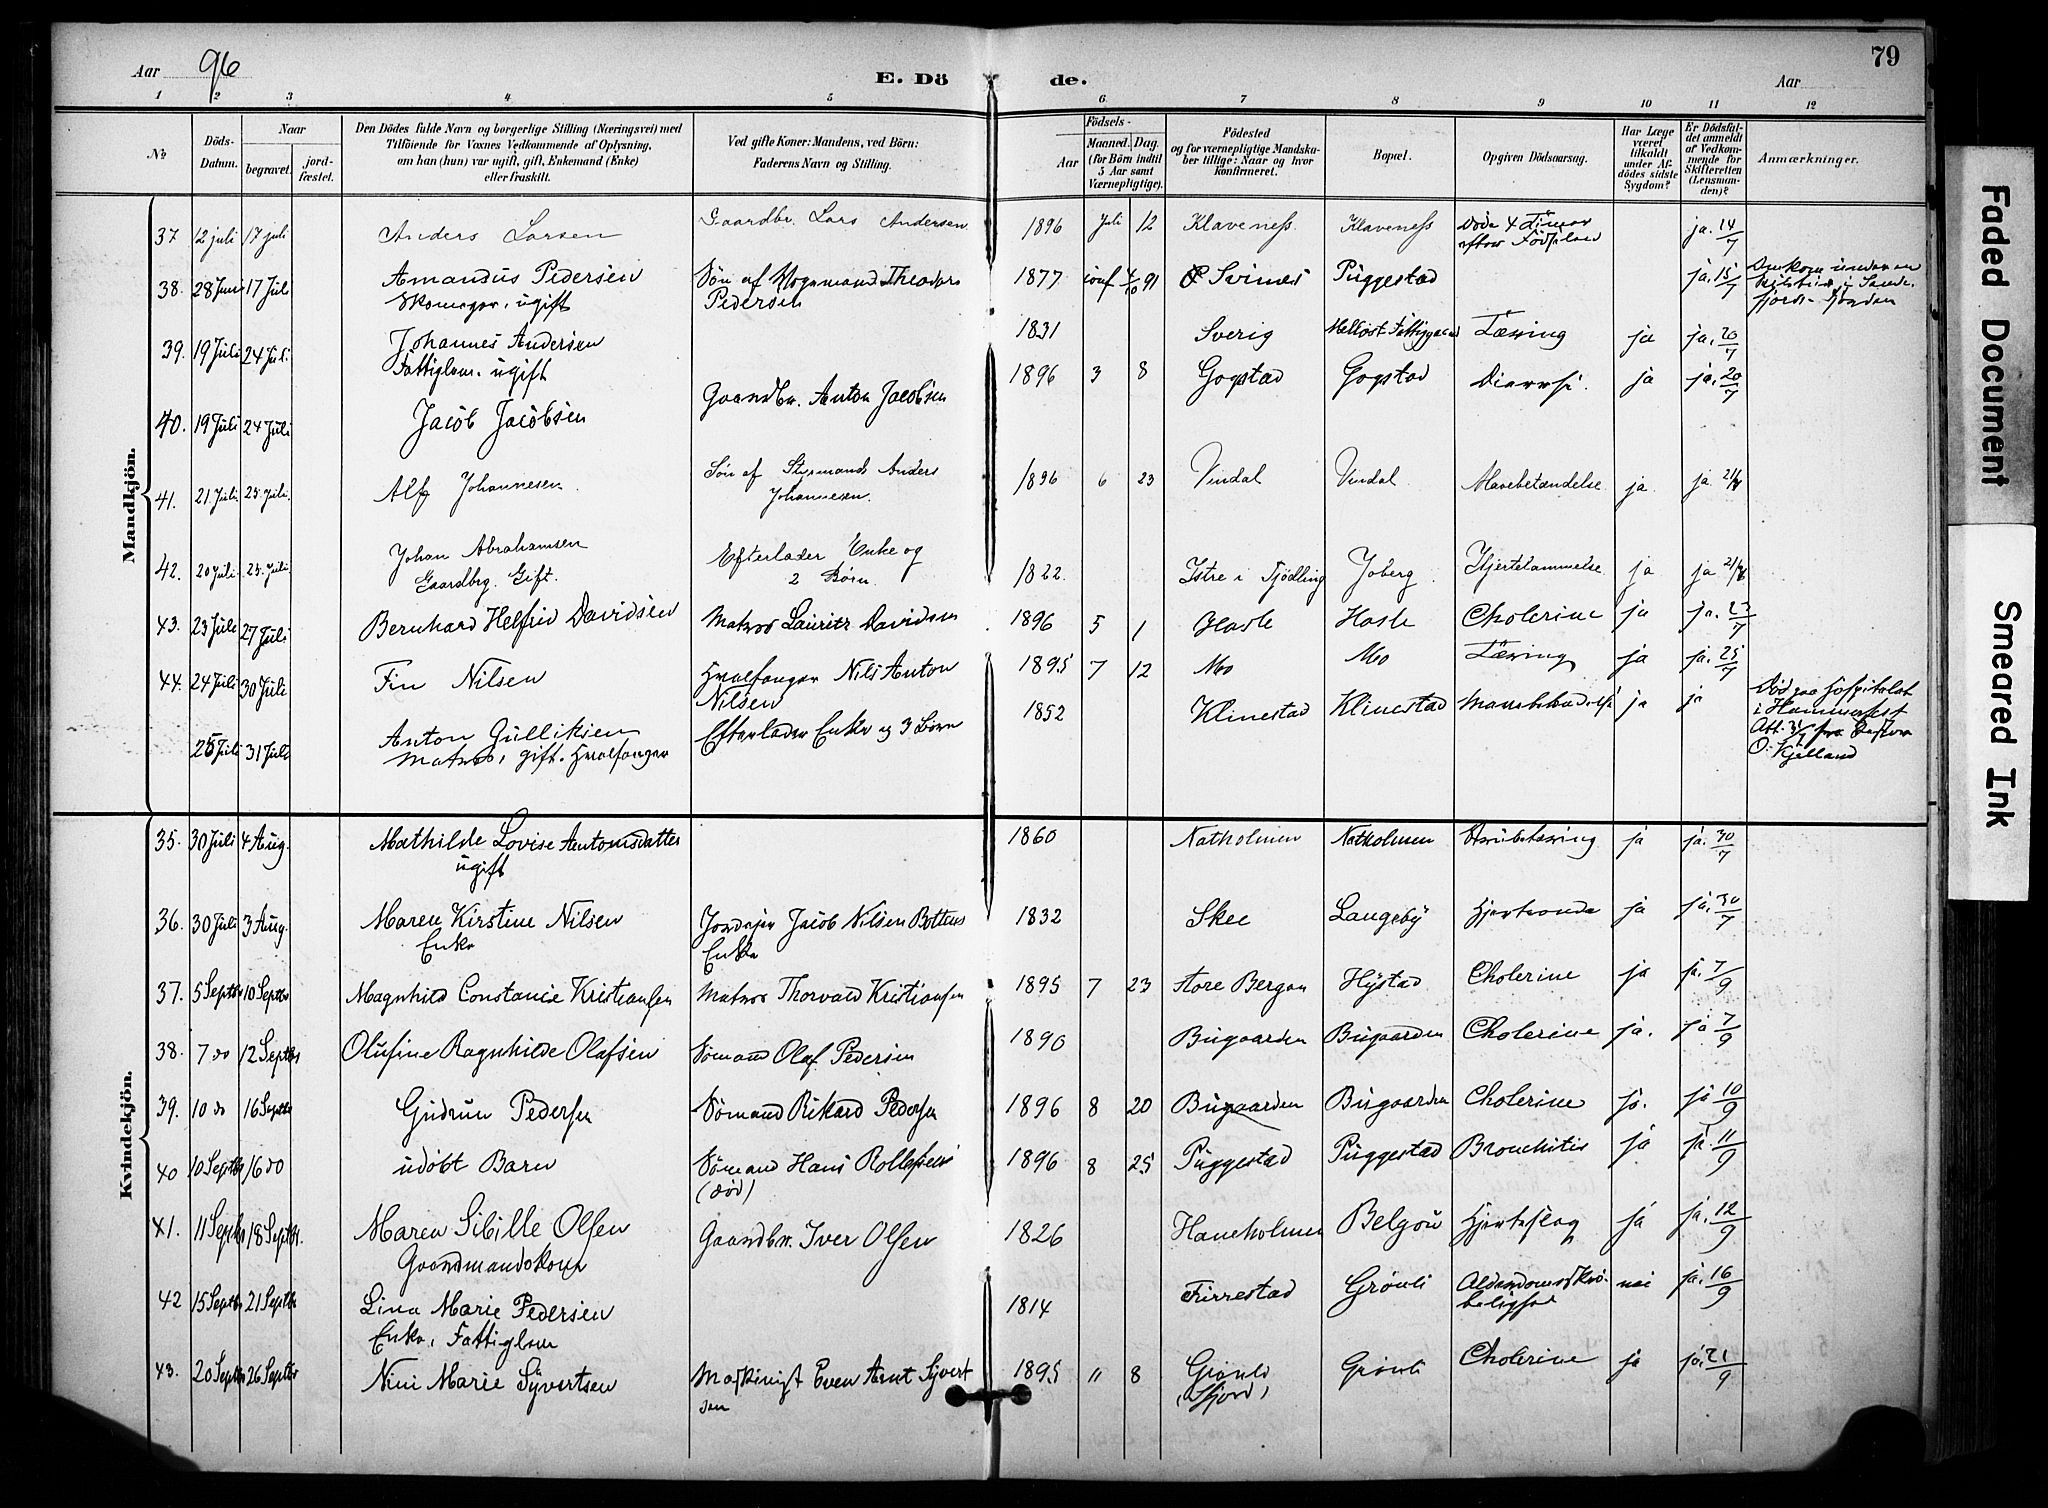 Aar 96
E. Döde.
79
Aar
1 2 3 4 5 6 7 8 9 10 11 12
№
Döds-Datum.
Naar
begravet.
jord-fæstet.
Den Dödes fulde Navn og borgerlige Stilling (Næringsvei) med
Tilföiende for Voxnes Vedkommende af Oplysning,
om han (hun) var ugift, gift, Enkemand (Enke)
eller fraskilt.
Ved gifte Koner: Mandens, ved Börn:
Faderens Navn og Stilling.
Födsels-
Aar
Maaned. Dag.
(for Börn indtil
5 Aar samt
Værnepligtige).
Födested
og for værnepligtige Mandska-
ber tillige: Naar og hvor
konfirmeret.
Bopæl.
Opgiven Dödsaarsag.
Har Læge
været
tilkaldt
under Af-
dödes sidste
Sygdom?
Er Dödsfal-
det anmeldt
af Vedkom-
mende for
Skifteretten
(Lensman-
den)?
Anmærkninger.
Mandkjön.
37 12 juli 17 juli Anders Larsen Gaardbr. Lars Andersen 1896 Juli 12 Klaveness Klaveness Döde 4 Timer efter Födselen ja. 14/7
38. 28 Juni 17 Juli Amandus Pedersen Skomager, ugift Søn af Theodor Pedersen 1877 conf 91 Svines Puggestad ja, 15/7
39. 19 Juli 24 Juli Johannes Andersen Fattiglem. ugift 1831 Sverig Tæring ja ja, 20/7
40. 19 Juli 24 Juli Jacob Jacobsen Gaardbr. Anton Jacobsen 1896 3 8 Gogstad Gogstad ja ja. 20/7
41. 21 Juli 25. Juli. Alf Johannesen. Søn af Styrmand Anders Johannesen. 1896 6 23 Vindal Vindal. Mavebetændelse. ja. ja
42. 20 Juli. 25. Juli. Johan Abrahamsen Gaardbrg. Gift. Efterlader Enke og 2 Børn. 1822. Istre i Tjödling Joberg. Hjertelammelse. ja ja
43. 23 Juli 27 Juli Bernhard Helfrid Davidsen Matros Lauritz Davidsen 1896 5 1 Hasle Hasle Cholerine ja ja. 23/7
44. 24 Juli 30 Juli Fin Nilsen Hvalfanger Nils Anton Nilsen 1895 7 12 Mo Mo Tæring ja ja. 25/7
25 Juli 31 Juli Anton Gulliksen Matros, gift. Hvalfanger Efterlader Enke og 3 Børn 1852 Klinestad Klinestad ja ja Død paa Hospitalet i Hammerfest Att. 31/7 fra O. Kjelland
Kvindekjön.
35. 30 Juli 4 Aug. Mathilde Lovise Antonsdatter ugift 1860 Natholmen Natholmen ja ja. 30/7
36. 30 Juli 3 Aug. Maren Kirstine Nilsen Enke Jordejer Jacob Nilsen Enke 1832 Skee Langeby Hjerteonde ja ja. 30/7
37. 5 Septbr 10 Septbr Magnhild Constance Kristiansen Matros Thorvald Kristiansen 1895 7 23 Store Bergan Hystad Cholerine ja ja. 7/9
38. 7 do 12 Septbr Olufine Ragnhilde Olafsen Sømand Olaf Pedersen 1890 Bugaarden Bugaarden Cholerine ja. ja 7/9
39. 10 do 16 Septbr Gudrun Pedersen Sømand Rikard Pedersen 1896 8 20 Bugaarden Bugaarden Cholerine ja. ja 10/9
40 10 Septbr 16 do udøbt Barn Sømand Hans Rollefsens (død) 1896 8 25 Puggestad Puggestad Bronchitis ja ja. 11/9
41. 11 Septbr 18 Septbr. Maren Sibille Olsen Gaardmandskone Gaardbr. Iver Olsen 1826 Haneholmen Belgou Hjerteslag ja ja. 12/9
42 15 Septbr 21 Septbr Lina Marie Pedersen Enke, Fattiglem 1814 Furrestad Grønli Alderdomsskrøbelighed nei ja. 16/9
43. 20 Septbr 26 Septbr Nini Marie Syvertsen Maskinist Even Arnt Syvertsen 1895 11 8 Grønli (Sfjord) Grønli Cholerine ja ja. 21/9
Faded Document
Smeared Ink